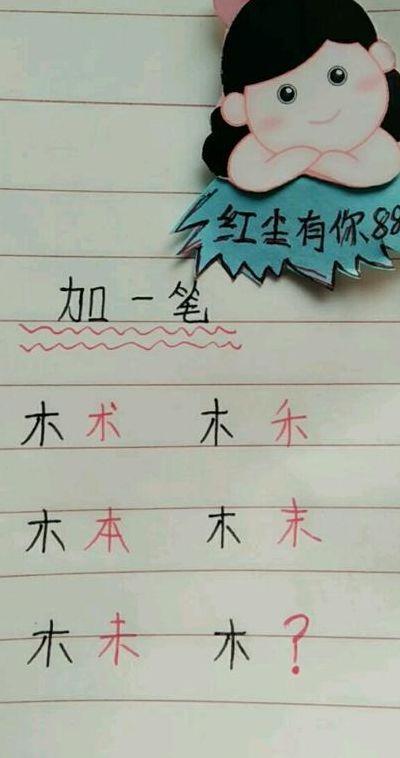 红尘有你88
加一笔
木 术 木 禾
木 本 木 末
木 未 木 ?